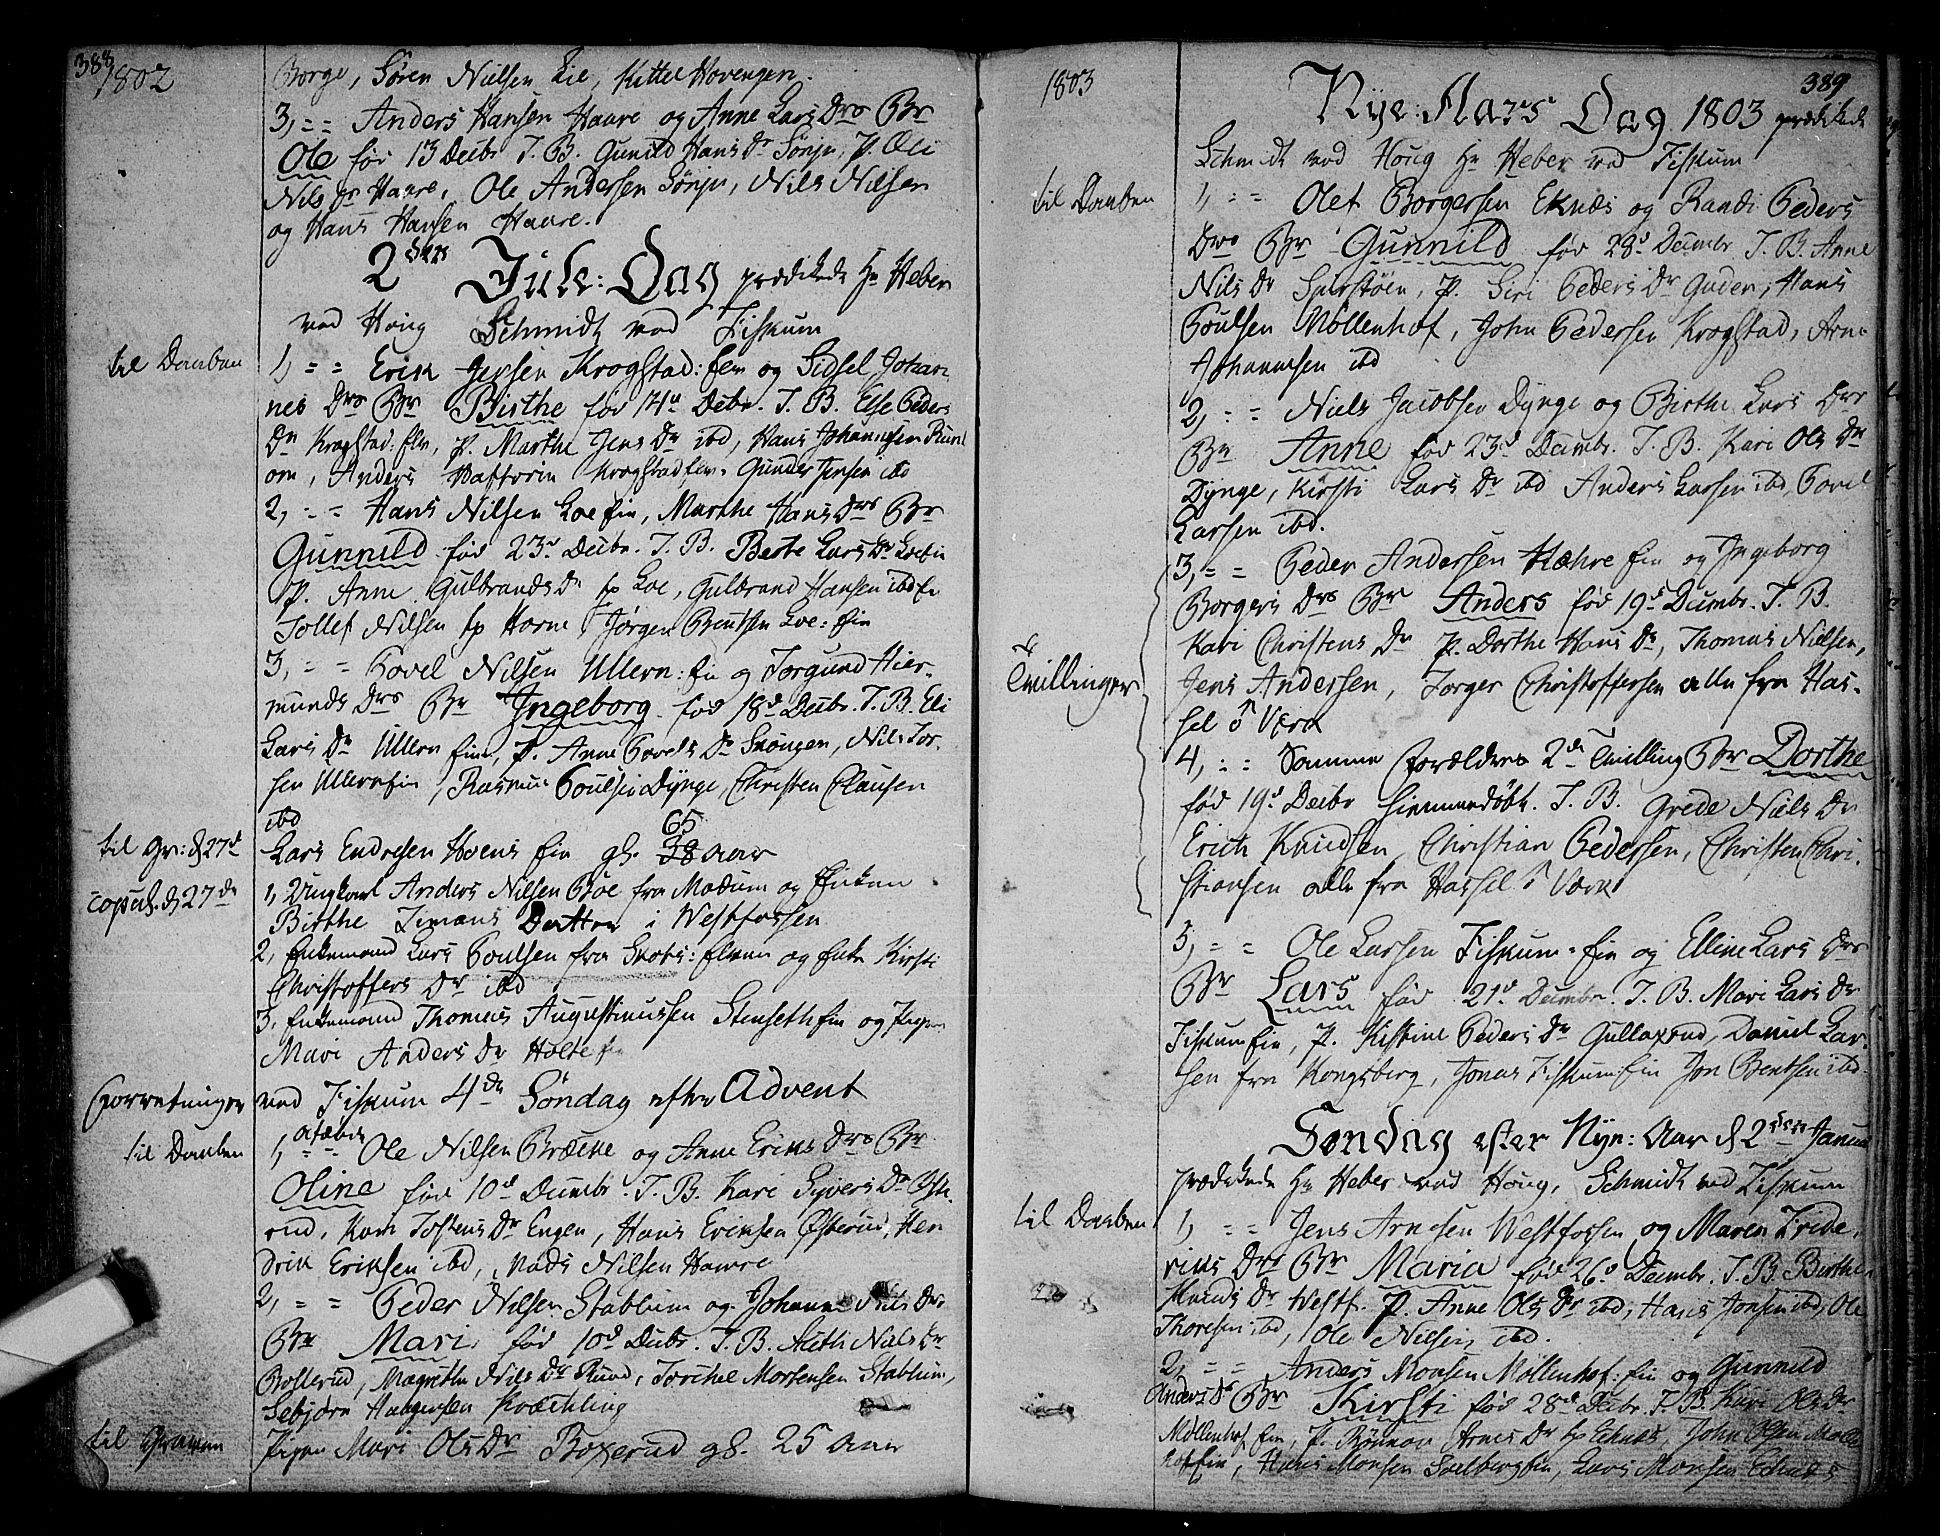 388
1802
Borge, Sören Nielsen Lie, Kittel Hovengen.
3, = = Anders Hansen Haare og Anne Lars Drs Br
Ole før 13 Decbr. T. B. Gunild Hans Dr Sönju, P. Eli
Nils Dr Haare, Ole Andersen Sönju, Nils Nilsen
og Hans Hansen Haare.
2den Jule: Dag prædikede Hr Heber
ved Houg Schmidt ved Fiskum
til Daaben
1, = = Erik Jensen Krogstad: Eien og Sidsel Johan-
nes Drs Br Birthe før 14de Debr. T. B. Else Peders
Dr Krogstad: , P. Marthe Jens Dr ibd, Hans Johannesen Rund
om, Anders Haftorin Krogstad Gunder Jensen ibd
2, = = Hans Nilsen Loe fin, Marthe Hans Drs Br
Gunnild før 23d Decbr. T. B. Berte Lars Dr Loe fin
P. Anne Gulbrands Dr fp Loe, Gulbrand Hansen ibd
Tollef Nilsen fp Horne, Jörgen Bentsen Loe: fin
3, = = Povel Nilsen Ullern: fin og Torgund Hier-
munds Drs Br Ingeborg. før 18d Decbr. T. B. Eli
Lars Dr Ullern fin, P. Anne Povels Dr Sköngen, Nils Tor-
sen Ullern fin, Rasmus Poulsen Dynge, Christen Clausen
ibd
til Gr: d 27d
Lars Endresen Hoens fin gl. 65 58 Aar
copul. d 27de
1, Ungkarl Anders Nilsen Böe fra Modum og Enken
Birthe Simens Datter i Westfossen
2, Enkemand Lars Poulsen fra Skots: Elven og Enke Kirsti
Christoffers Dr ibd
3, Enkemand Thomas Augustinussen Stenseth fin og Pigen
Mari Anders Dr Holte fin
Forretninger
ved Fiskum 4de Söndag efter Advent
til Daaben
1, = = Ole Nilsen Bræcke og Anne Eriks Drs Br
Oline før 10d Decmbr. T. B. Kari Syvers Dr Öste-
rud, Kari Tostens Dr Engen, Hans Eriksen Österud, Hen
drik Eriksen ibd, Mads Nilsen Hawre
2, = = Peder Nilsen Stablum og Johanne Nils Drs
Br Mari. før 10d Decbr. T. B. Aaseth Niels Dr
Bollerud, Magrethe Nils Dr Ruud, Torchel Mortensen Stablum,
Sebjörn Haagensen Kræchling
til Graven
Pigen Mari Ols Dr Boxerud gl. 25 Aar
389
1803
Nye: Aars Dag 1803 prædikede
Schmidt ved Houg Hr Heber ved Fiskum
til Daaben
1, = = Olef Borgersen Eknæs og Randi Peders
Drs Br Gunnild før 28d Decmbr. T. B. Anne
Nils Dr Spirstöen, P. Siri Peders Dr Guden, Hans
Poulsen Möllenhof, John Pedersen Krogstad, Arne
Johannesen ibd
2, = = Niels Jacobsen Dynge og Birthe Lars Drs
Br Anne før 23d Decmbr. T. B. Kari Ols Dr
Dynge, Kirsti Lars Dr ibd Anders Larsen ibd, Povel
Larsen ibd.
3, = = Peder Andersen Hæhre fin og Ingeborg
Borgers Drs Br Anders før 19d Decmbr. T. B.
Kari Christens Dr P. Dorthe Hans Dr, Thomas Nielsen,
Tvillinger
Jens Andersen, Torger Christoffersen alle fra Has-
sel Værk
4, = = Samme Forældres 2de Tvilling Br Dorthe
før 19d Decbr hiemmedöbt. T. B. Grede Niels Dr
Erich Knudsen, Christian Pedersen, Christen Chri-
stiansen alle fra Hassel Værk
5, = = Ole Larsen Fiskum: fin og Elline Lars Drs
Br Lars før 21d Decmbr. T. B. Mari Lars Dr
Fiskum fin, P. Kistine Peders Dr Gullaxrud, Daniel Lar-
sen fra Kongsberg, Jonas Fiskum: fin Jon Bentsen ibd
Søndag efter Nyn: Aar d 2den Januar
prædikede Hr Heber ved Houg, Schmidt ved Fiskum
til Daaben
1, = = Jens Arnesen Westfossen og Maren Fride-
riks Drs Br Maria før 26d Decmbr. T. B. Birthe
Knuds Dr Westf. P. Anne Ols Dr ibd, Hans Jonsen ibd, Ole
Thoresen ibd, Ole Nilsen ibd.
2, = = Anders Monsen Möllenhof: fin og Gunnild
Anders Ds Br Kirsti før 28d Decbr. T. B. Kari Ols Dr
Möllenhof fin, P. Rönnov Arnes Dr fp Eknæs, John Olsen Mölle
hof fin, Hans Monsen Solberg fin, Lars Monsen Eknæs